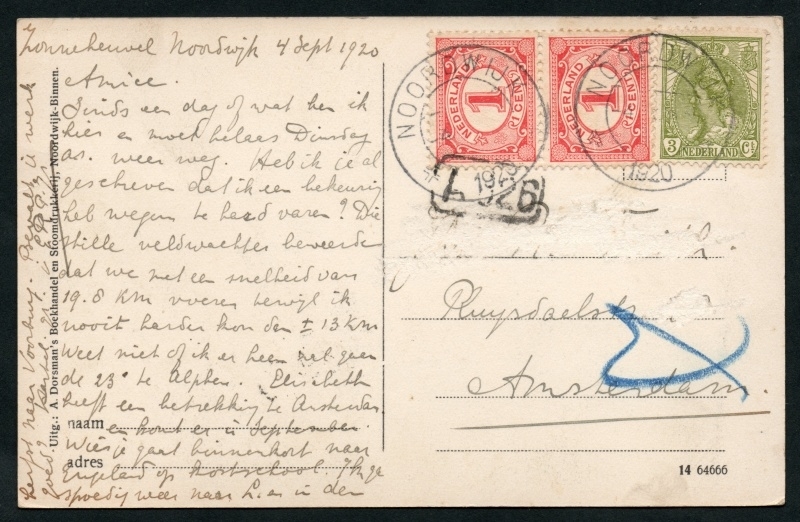 Zonneheuvel Noordwijk 4 Sept 1920
Amice.
Sinds een dag of wat ben ik
hier en moet helaas Dinsdag
as. weer weg. Heb ik je al
geschreven dat ik een bekeuring
heb wegens te hard varen? Die
stille veldwachter beweerde
dat we met een snelheid van
19.8 KM voeren terwijl ik
nooit harder kon dan ± 13 KM
Weet niet of ik er heen zal gaan
de 23e te Alphen. Elisabeth
heeft een betrekking te Amsterdam
en komt er in September.
Wies je gaat binnenkort naar
Engeland op kostschool. Ik ga
spoedig weer naar L. en in den
herfst naar Voorburg.
naam
adres
Uitg.: A. Dorsman's Boekhandel en Stoomdrukkerij, Noordwijk-Binnen.
NEDERLAND 1 CENT
NEDERLAND 1 CENT
3 Ct
NEDERLAND
NOORDWIJK
1920
NOORDW
1920
Ruysdaelstr
Amsterdam.
14 64666